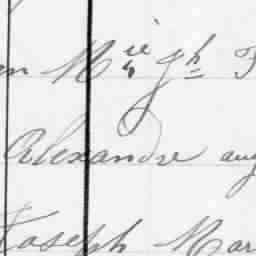 Mie Jh
Alexandre aug
Joseph Mar